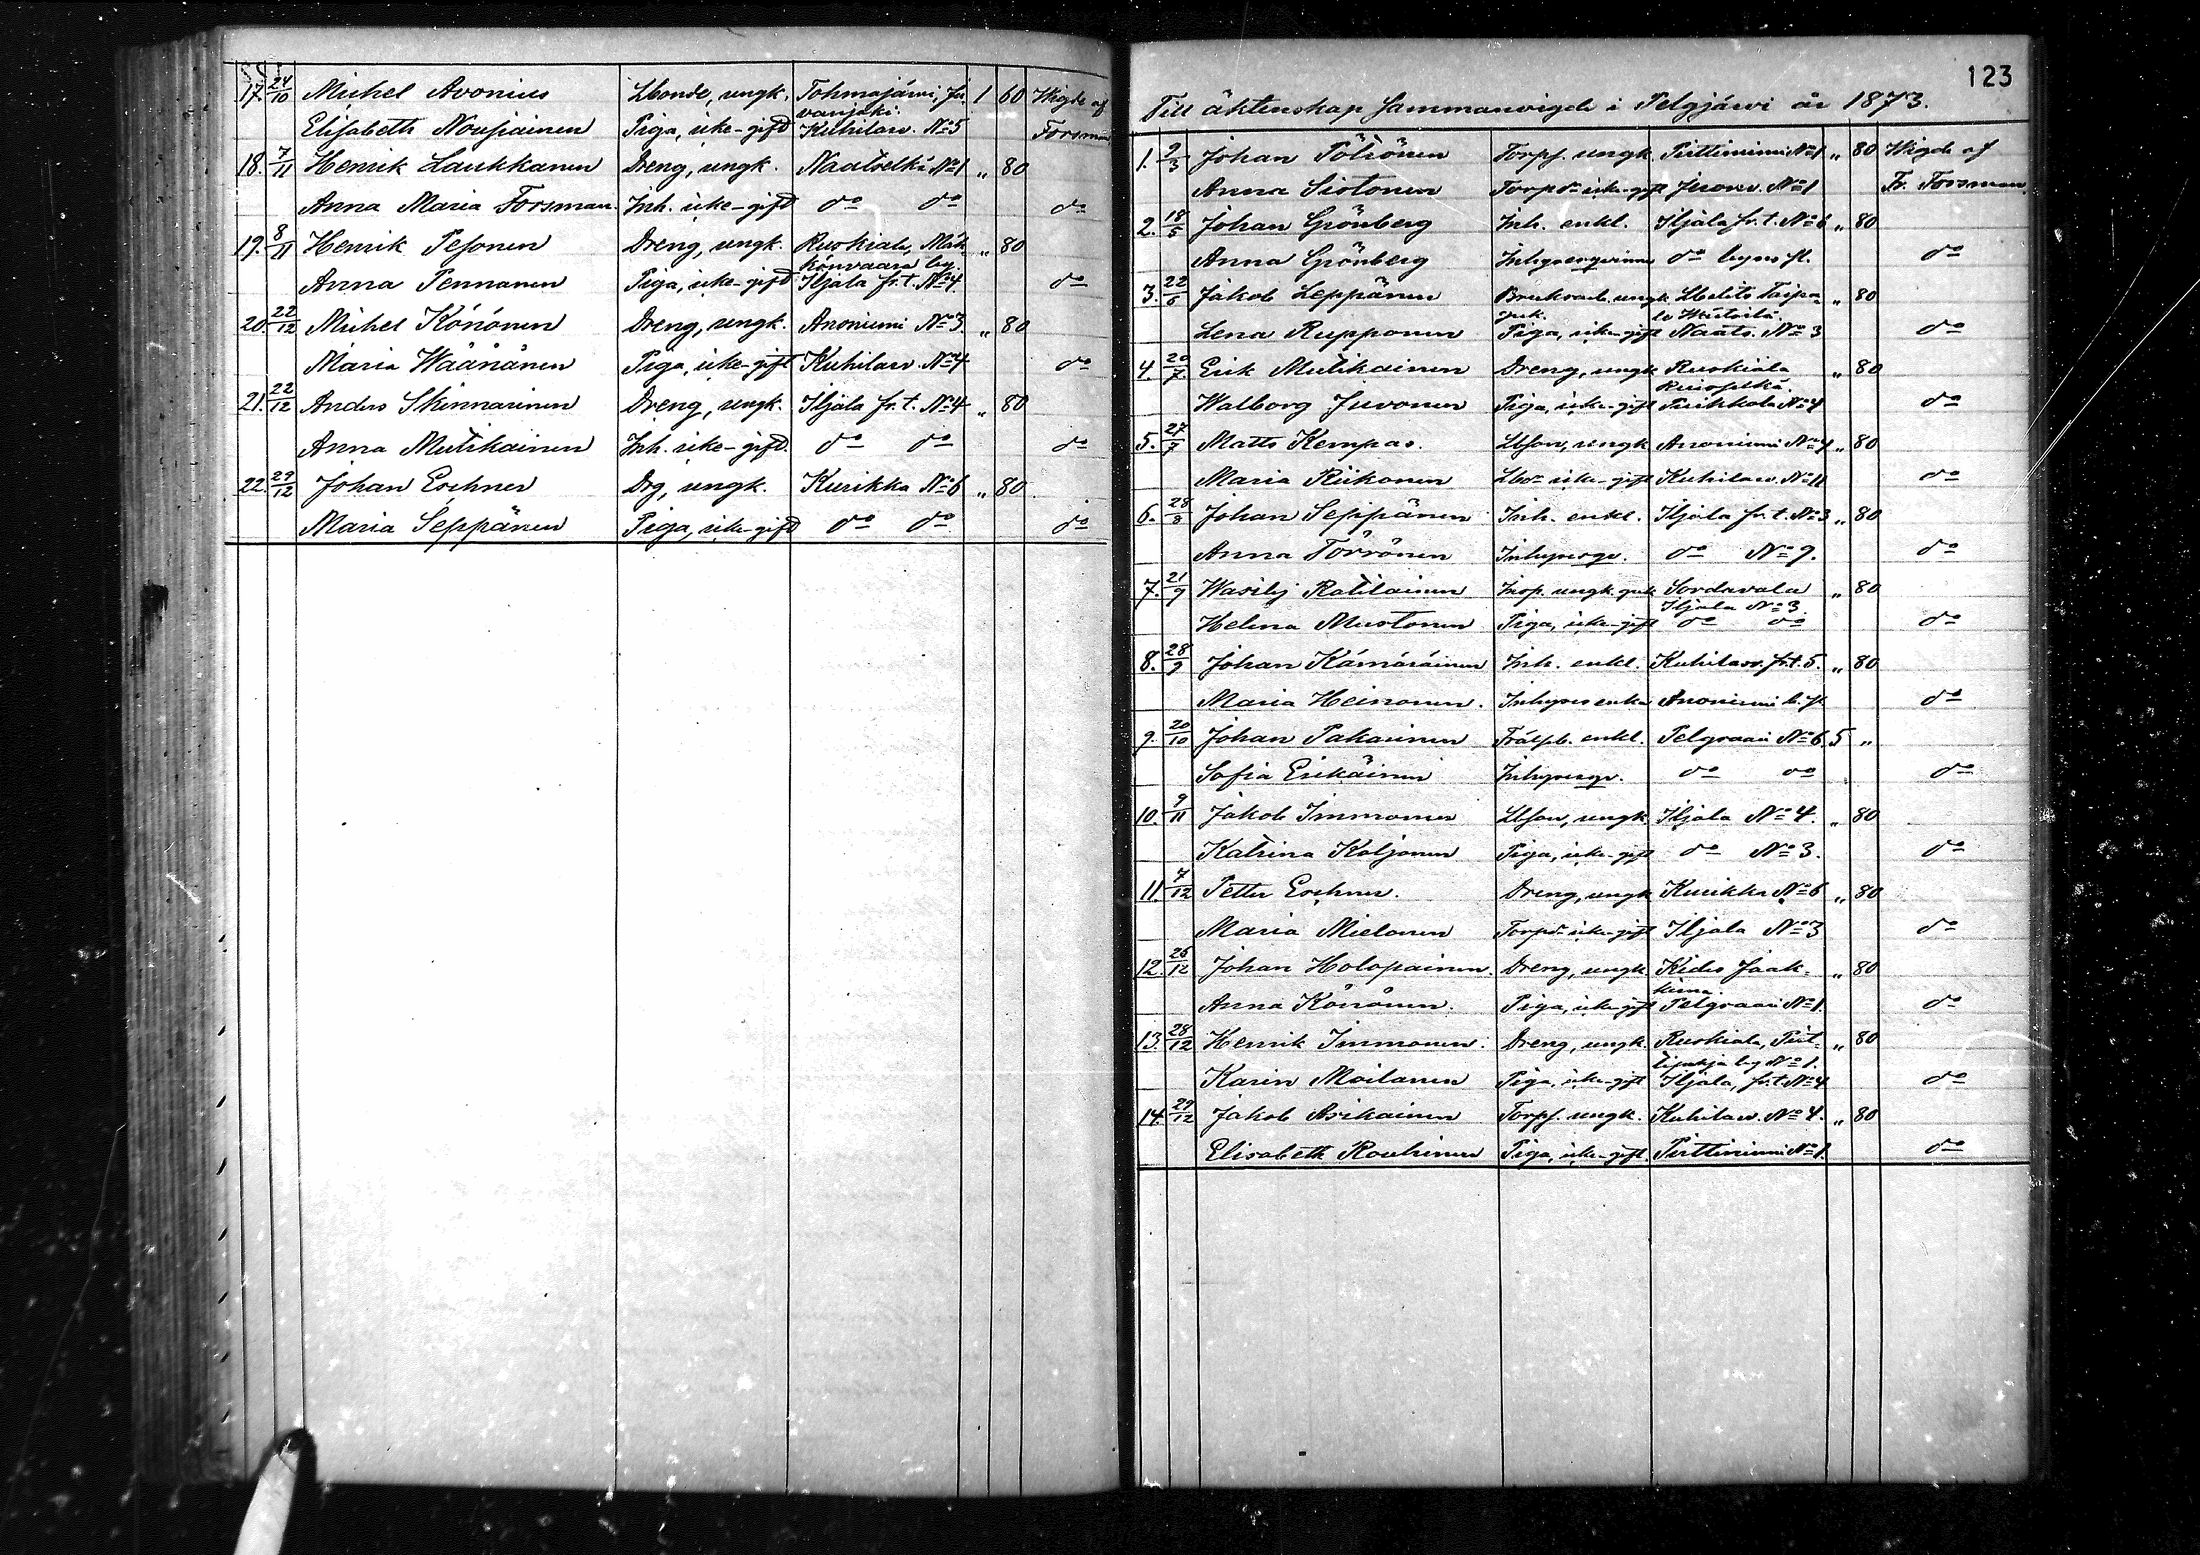 17. 24/10 Michel Avonius Lbonde, ungk. Tohmajärvi, 1 60 Wigde af
Elisabeth Nousiainen Piga, icke-gift Kuhilaw. No 5 Forsman
18. 7/11 Henrik Laukkanen Dreng, ungk. Naatselkä No 1 " 80
Anna Maria Forsman. Inh. icke-gift do do do
19. 8/11 Henrik Pesonen Dreng, ungk. Ruskiala, " 80
könvaara by.
Anna Pennanen Piga, icke-gift Iljala fr. t. No 4. do
20. 22/12 Michel Könönen Dreng, ungk. Anoniemi No 3 " 80
Maria Wäänänen Piga, icke-gift Kuhilaw. No 4 do
21. 22/12 Anders Skinnarinen Dreng, ungk. Iljala fr. t. No 4 " 80
Anna Mutikainen Inh. icke-gift. do do do
22. 29/12 Johan Eschner Drg, ungk. Kurikka No 6 " 80
Maria Seppänen Piga, icke-gift do do do
123
Till äktenskap Sammanvigde i Pelgjärvi år 1873.
1. 9/3 Johan Pötrönen Torps. ungk. Pirttiniemi No 1 " 80 Wigde af
Anna Siotonen Torpd. icke-gift Juonv. No 1 Fr. Forsman.
2. 18/5 Johan Grönberg Inh. enkl. Iljala fr. t. No 6 " 80
Anna Grönberg do byns fl. do
3. 22/6 Jakob Leppänen " 80
Lena Rupponen Piga, icke-gift Naats. No 3 do
4. 20/7 Erik Mutikainen Dreng, ungk Ruskiala " 80
Walborg Juvonen Piga, icke-gift Puikkola No 4 do
5. 27/7 Matts Kempas. Lbson, ungk Anoniemi No 4 " 80
Maria Riikonen Lbdr icke-gift Kuhilaw. No 11 do
6. 28/8 Johan Seppänen Inh. enkl. Iljala fr. t. No 3 " 80
Anna Törrönen Inhysesqv. do No 9. do
7. 21/9 Wasilij Ratilainen Insp. ungk. Sordavala " 80
Iljala No 3.
Helena Mustonen Piga, icke-gift do do do
8. 28/9 Johan Kämäräinen Inh. enkl. Kuhilaw. fr. t. 5. " 80
Maria Heinonen. Inhyses enka Anoniemi b. fl. do
9. 20/10 Johan Pakarinen enkl. Pelgraani No 6 5 "
Sofia Erikäinen Inhysesqv. do do do
10. 9/11 Jakob Immonen Lbson, ungk Iljala No 4. " 80
Katrina Koljonen Piga, icke-gift do No 3. do
11. 7/12 Petter Eschner. Dreng, ungk Kurikka No 6 " 80
Maria Mielonen Torpdr icke-gift Iljala No 3 do
12. 26/12 Johan Holopainen. Dreng, ungk Kides Jaak- " 80
kima.
Anna Könönen. Piga, icke-gift Pelgraani No 1. do
13. 28/12 Henrik Immonen. Dreng, ungk. Ruskiala, Pirt- " 80
by No 1.
Karin Moilanen Piga, icke-gift Iljala, fr. t. No 4 do
14. 29/12 Jakob Asikainen Torps. ungk. Kuhilaw. No 4. " 80
Elisabeth Rouhinen Piga, icke-gift. Pirttiniemi No 1. do